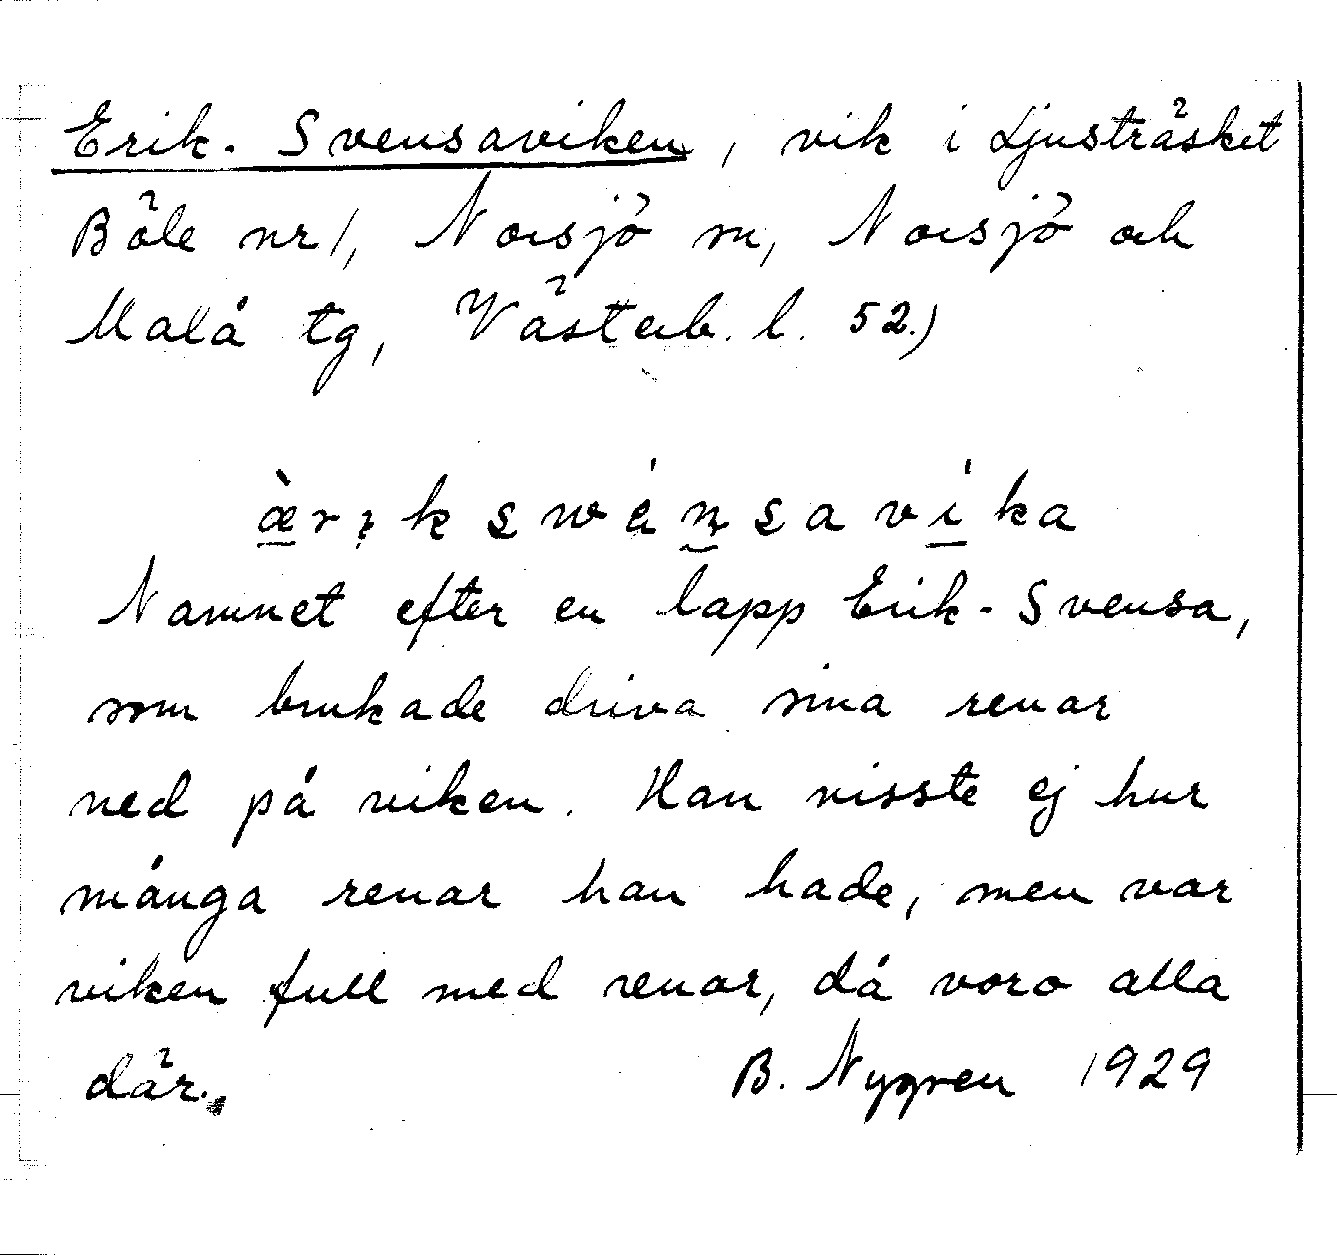 Erik-Svensaviken, vik i Ljusträsket
Böle nr 1, Norsjö sn, Norsjö och
Malå tg, Västerb. l. 52.)
ær̀ık swénsavíka
Namnet efter en lapp Erik-Svensa,
som brukade driva sina renar
ned på viken. Han visste ej hur
många renar han hade, men var
viken full med renar, då voro alla
där.
B. Nygren 1929